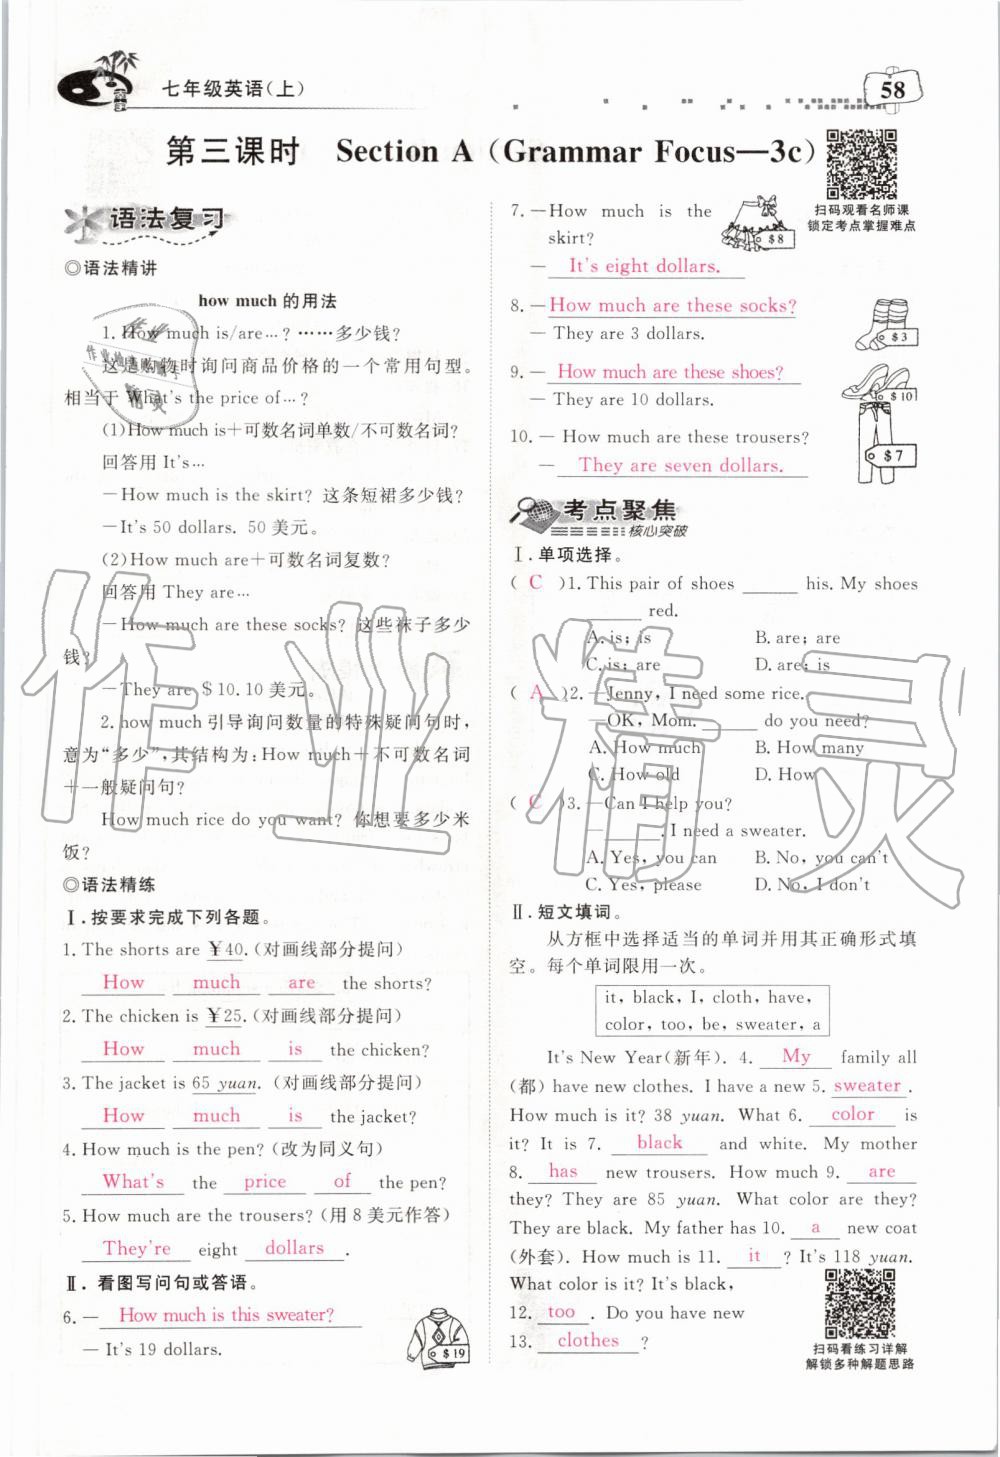 七年级英语(上)
58
第三课时 Section A (Grammar Focus—3c)
语法复习
◎语法精讲
how much 的用法
1. How much is/are…? ……多少钱?
这是购物时询问商品价格的一个常用句型。
相当于 What's the price of…?
(1)How much is+可数名词单数/不可数名词?
回答用 It's…
—How much is the skirt? 这条短裙多少钱?
—It's 50 dollars. 50 美元。
(2)How much are+可数名词复数?
回答用 They are…
—How much are these socks? 这些袜子多少
钱?
—They are $10. 10 美元。
2. how much 引导询问数量的特殊疑问句时,
意为“多少”,其结构为: How much+不可数名词
+一般疑问句?
How much rice do you want? 你想要多少米
饭?
◎语法精练
Ⅰ. 按要求完成下列各题。
1. The shorts are ¥40. (对画线部分提问)
How much are the shorts?
2. The chicken is ¥25. (对画线部分提问)
How much is the chicken?
3. The jacket is 65 yuan. (对画线部分提问)
How much is the jacket?
4. How much is the pen? (改为同义句)
What's the price of the pen?
5. How much are the trousers? (用 8 美元作答)
They're eight dollars.
Ⅱ. 看图写问句或答语。
6. — How much is this sweater?
— It's 19 dollars.
$19
7. —How much is the
skirt?
— It's eight dollars.
$8
8. —How much are these socks?
— They are 3 dollars.
$3
9. — How much are these shoes?
— They are 10 dollars.
$10
10. — How much are these trousers?
— They are seven dollars.
$7
扫码观看名师课
锁定考点掌握难点
考点聚焦
核心突破
Ⅰ. 单项选择。
( C )1. This pair of shoes ______ his. My shoes
______ red.
A. is; is B. are; are
C. is; are D. are; is
( A )2. —Jenny, I need some rice.
—OK, Mom. ______ do you need?
A. How much B. How many
C. How old D. How
( C )3. —Can I help you?
— ______. I need a sweater.
A. Yes, you can B. No, you can't
C. Yes, please D. No, I don't
Ⅱ. 短文填词。
从方框中选择适当的单词并用其正确形式填
空。每个单词限用一次。
it, black, I, cloth, have,
color, too, be, sweater, a
It's New Year(新年). 4. My family all
(都) have new clothes. I have a new 5. sweater.
How much is it? 38 yuan. What 6. color is
it? It is 7. black and white. My mother
8. has new trousers. How much 9. are
they? They are 85 yuan. What color are they?
They are black. My father has 10. a new coat
(外套). How much is 11. it ? It's 118 yuan.
What color is it? It's black,
12. too. Do you have new
13. clothes ?
扫码看练习详解
解锁多种解题思路
作业精灵